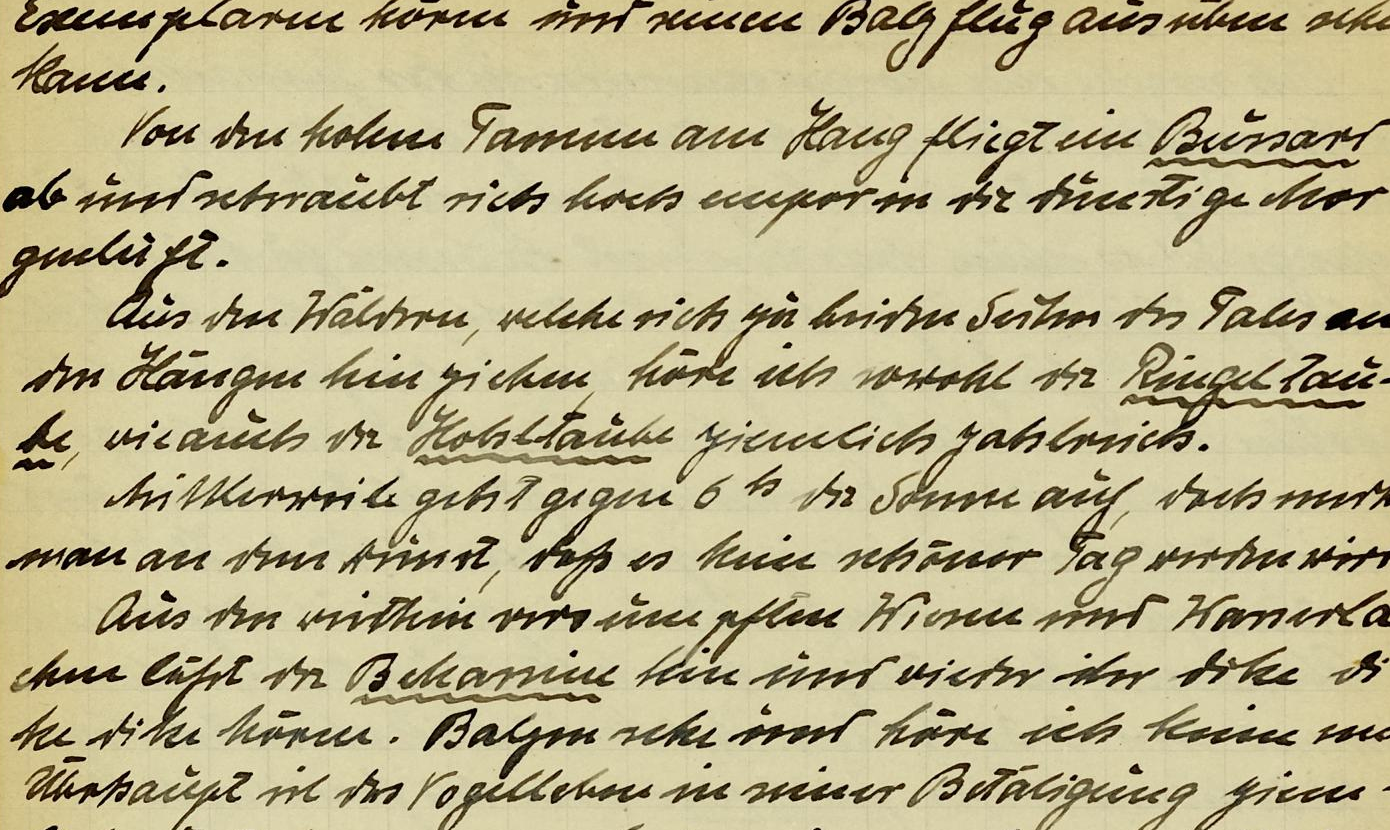 Exemplaren hören und seinen Balzflug ausüben sehe
kann.
Von den hohen Tannen am Hang fliegt ein Bussard
ab und schraubt sich hoch empor in die dunstige Mor
genluft.
Aus den Wäldern, welche sich zu beiden Seiten des Tales an
den Hängen hin ziehen, höre ich sowohl die Ringeltau-
be, wie auch die Hohltaube ziemlich zahlreich.
Mittlerweile geht gegen 6 h die Sonne auf, doch merk
man an dem Dunst, daß es kein schöner Tag werden wird
Aus den weithin versumpften Wiesen und Wasserla
chen läßt die Bekassine hin und wieder ihr dike di
ke dike hören. Balzen sehe und höre ich keine
Überhaupt ist das Vogelleben in seiner Betätigung ziem-